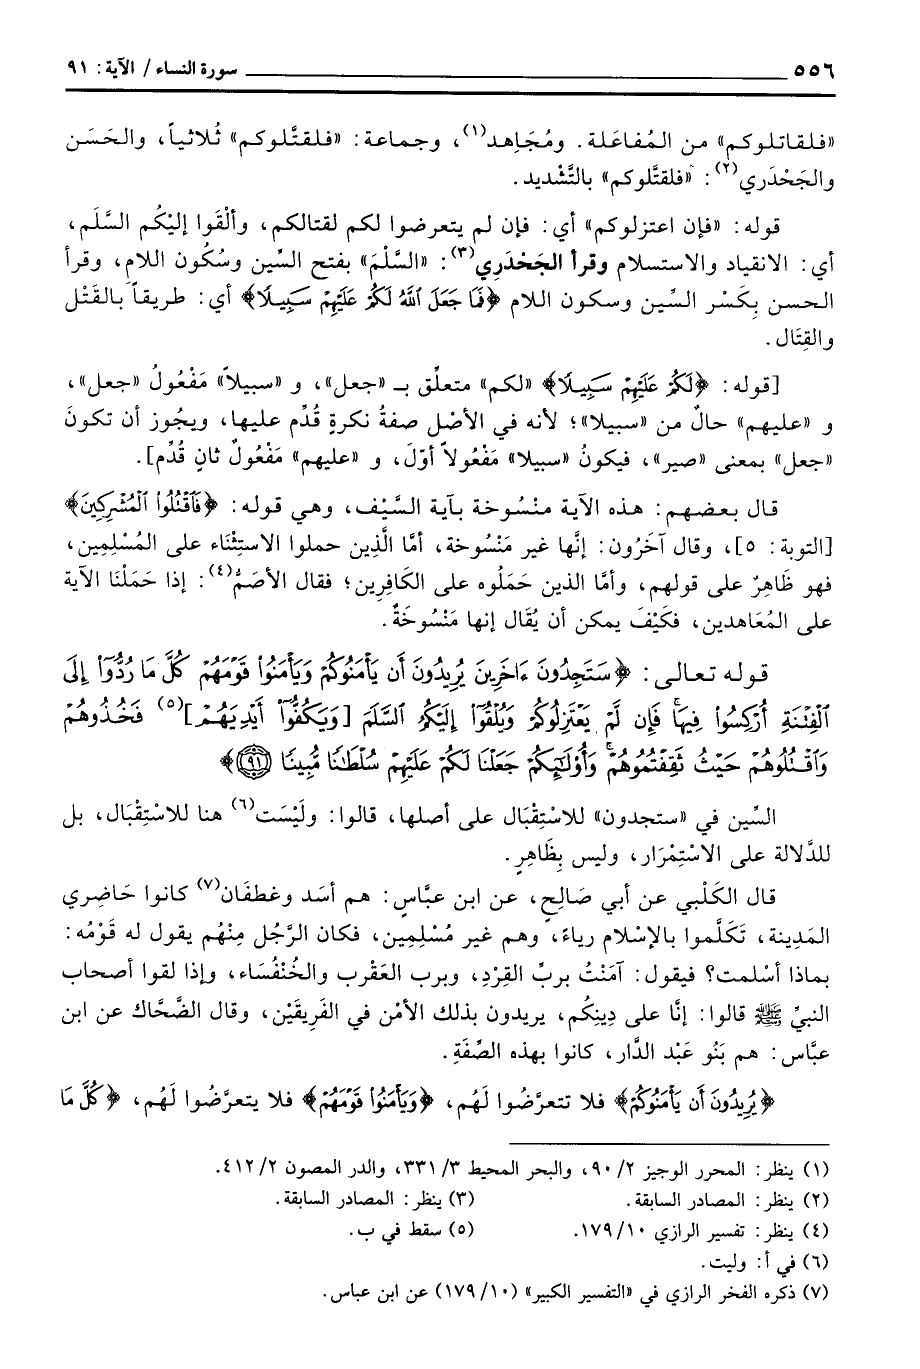 ٥٥٦ سورة النساء / الآية: ٩١
«فلقاتلوكم» من المُفاعَلة. ومُجَاهِد(١)، وجماعة: «فلقتَلوكم» ثُلاثياً، والحَسَن
والجَحْدَري(٢): «فلقتَّلوكم» بالتَّشْديد.
قوله: «فإن اعتزلوكم» أي: فإن لم يتعرضوا لكم لقتالكم، وألْقَوا إليْكُم السَّلَم،
أي: الانقياد والاستسلام وقرأ الجَحْدَرِي(٣): «السَّلْمَ» بفتح السِّين وسُكُون اللام، وقرأ
الحسن بِكَسْر السِّين وسكون اللام ﴿فَمَا جَعَلَ ٱللَّهُ لَكُمْ عَلَيْهِمْ سَبِيلًا﴾ أي: طريقاً بالقَتْل
والقِتَال.
[قوله: ﴿لَكُمْ عَلَيْهِمْ سَبِيلًا﴾ «لكم» متعلِّق بـ «جعل»، و «سبيلاً» مَفْعُولُ «جعل»،
و «عليهم» حالٌ من «سبيلا»؛ لأنه في الأصْل صفةُ نكرةٍ قُدِّم عليها، ويجُوز أن تكونَ
«جعل» بمعنى «صير»، فيكونُ «سبيلا» مَفْعُولاً أوّلَ، و «عليهم» مَفْعُولٌ ثانٍ قُدِّم].
قال بعضهم: هذه الآية منْسُوخة بآية السَّيْف، وهي قوله: ﴿فَٱقْتُلُوا۟ ٱلْمُشْرِكِينَ﴾
[التوبة: ٥]، وقال آخَرُون: إنَّها غير مَنْسُوخة، أمَّا الَّذِين حملوا الاستِثْنَاء على المُسْلِمِين،
فهو ظَاهِرٌ على قولهم، وأمَّا الذين حَمَلُوه على الكَافِرِين؛ فقال الأصَمُّ(٤): إذا حَمَلْنَا الآية
على المُعَاهدين، فكَيْفَ يمكن أن يُقَال إنها مَنْسُوخَةٌ.
قوله تعالى: ﴿سَتَجِدُونَ ءَاخَرِينَ يُرِيدُونَ أَن يَأْمَنُوكُمْ وَيَأْمَنُوا۟ قَوْمَهُمْ كُلَّ مَا رُدُّوٓا۟ إِلَى
ٱلْفِتْنَةِ أُرْكِسُوا۟ فِيهَا ۚ فَإِن لَّمْ يَعْتَزِلُوكُمْ وَيُلْقُوٓا۟ إِلَيْكُمُ ٱلسَّلَمَ [وَيَكُفُّوٓا۟ أَيْدِيَهُمْ](٥) فَخُذُوهُمْ
وَٱقْتُلُوهُمْ حَيْثُ ثَقِفْتُمُوهُمْ ۚ وَأُو۟لَٰٓئِكُمْ جَعَلْنَا لَكُمْ عَلَيْهِمْ سُلْطَٰنًا مُّبِينًا ﴿٩١﴾﴾
السِّين في «ستجدون» للاسْتِقْبَال على أصلها، قالوا: ولَيْسَت(٦) هنا للاسْتِقْبَال، بل
للدَّلالة على الاسْتِمْرَار، وليس بِظَاهِرٍ.
قال الكَلْبي عن أبي صَالِحٍ، عن ابن عبَّاسٍ: هم أسَد وغطفَان(٧) كانوا حَاضِري
المَدِينة، تَكَلَّموا بالإسْلام رياءً، وهم غير مُسْلِمِين، فكان الرَّجُل مِنْهُم يقول له قَوْمُه:
بماذا أسْلمت؟ فيقول: آمَنْتُ بربِّ القِرْدِ، وبرب العَقْرب والخُنْفُسَاء، وإذا لقوا أصحاب
النبيِّ ﷺ قالوا: إنَّا على دِينِكُم، يريدون بذلك الأمْن في الفَرِيقَيْن، وقال الضَّحَّاك عن ابن
عبَّاس: هم بَنُو عَبْد الدَّار، كانوا بهذه الصِّفَةِ.
﴿يُرِيدُونَ أَن يَأْمَنُوكُمْ﴾ فلا تتعرَّضُوا لَهُم، ﴿وَيَأْمَنُوا۟ قَوْمَهُمْ﴾ فلا يتعرَّضُوا لَهُم، ﴿كُلَّ مَا
(١) ينظر: المحرر الوجيز ٢/ ٩٠، والبحر المحيط ٣/ ٣٣١، والدر المصون ٢/ ٤١٢.
(٢) ينظر: المصادر السابقة. (٣) ينظر: المصادر السابقة.
(٤) ينظر: تفسير الرازي ١٠/ ١٧٩. (٥) سقط في ب.
(٦) في أ: وليت.
(٧) ذكره الفخر الرازي في «التفسير الكبير» (١٠/ ١٧٩) عن ابن عباس.